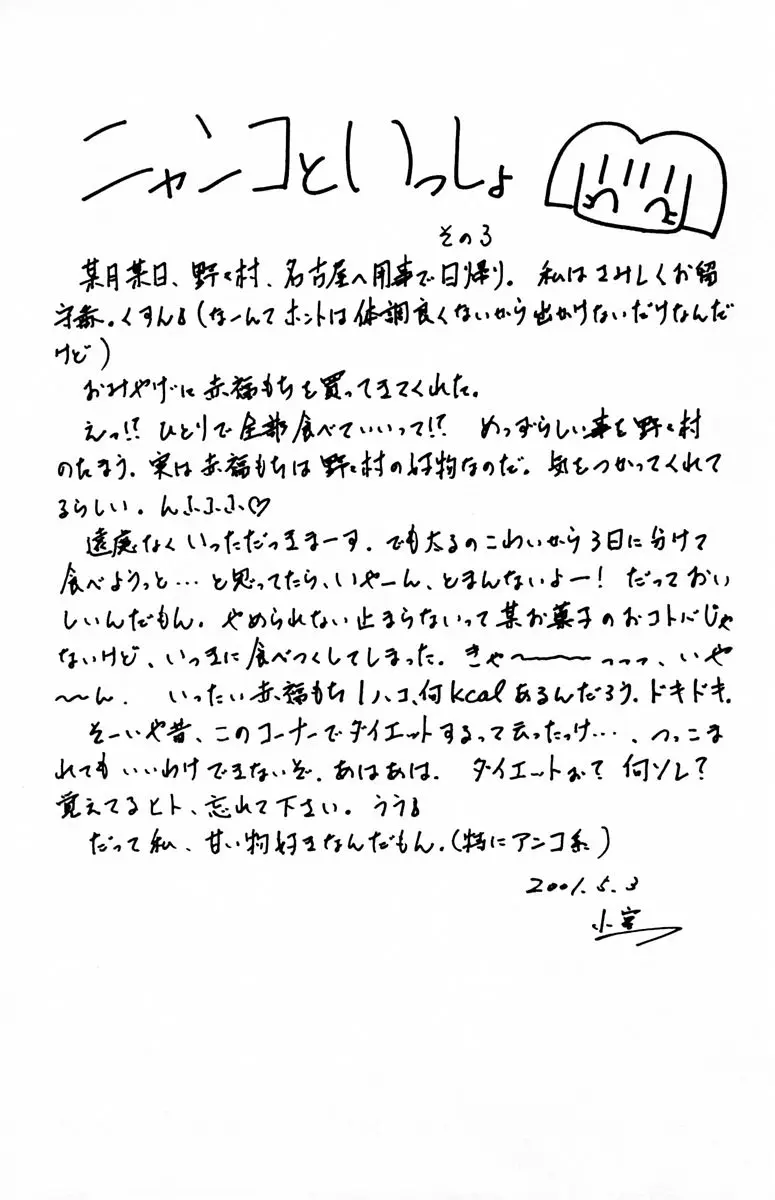 ニャンコといっしょ
その3
某月某日、野々村、名古屋へ用事で日帰り。私はさみしくお留
守番。くすん。(なーんてホントは体調良くないから出かけないだけなんだ
けど)
おみやげに赤福もちを買ってきてくれた。
えっ!?ひとりで全部食べていいって!?めっずらしい事を野々村
のたまう。実は赤福もちは野々村の好物なのだ。気をつかってくれて
るらしい。んふふふふ♡
遠慮なくいっただっきまーす。でも太るのこわいから3日に分けて
食べようっと…と思ってたら、いやーん、とまんないよー!だっておい
しいんだもん。やめられない止まらないって某お菓子のおコトバじゃ
ないけど、いっきに食べつくしてしまった。きゃ〜〜〜っっっ、いや
〜〜ん。いったい赤福もち1ハコ、何kcalあるんだろう。ドキドキ。
そーいや昔、このコーナーでダイエットするって云ったっけ…、つっこま
れてもいいわけできないぞ。あはあは。ダイエットぉ?何ソレ?
覚えてるヒト、忘れて下さい。ううっ
だって私、甘い物好きなんだもん。(特にアンコ系)
2001.5.3
小宮